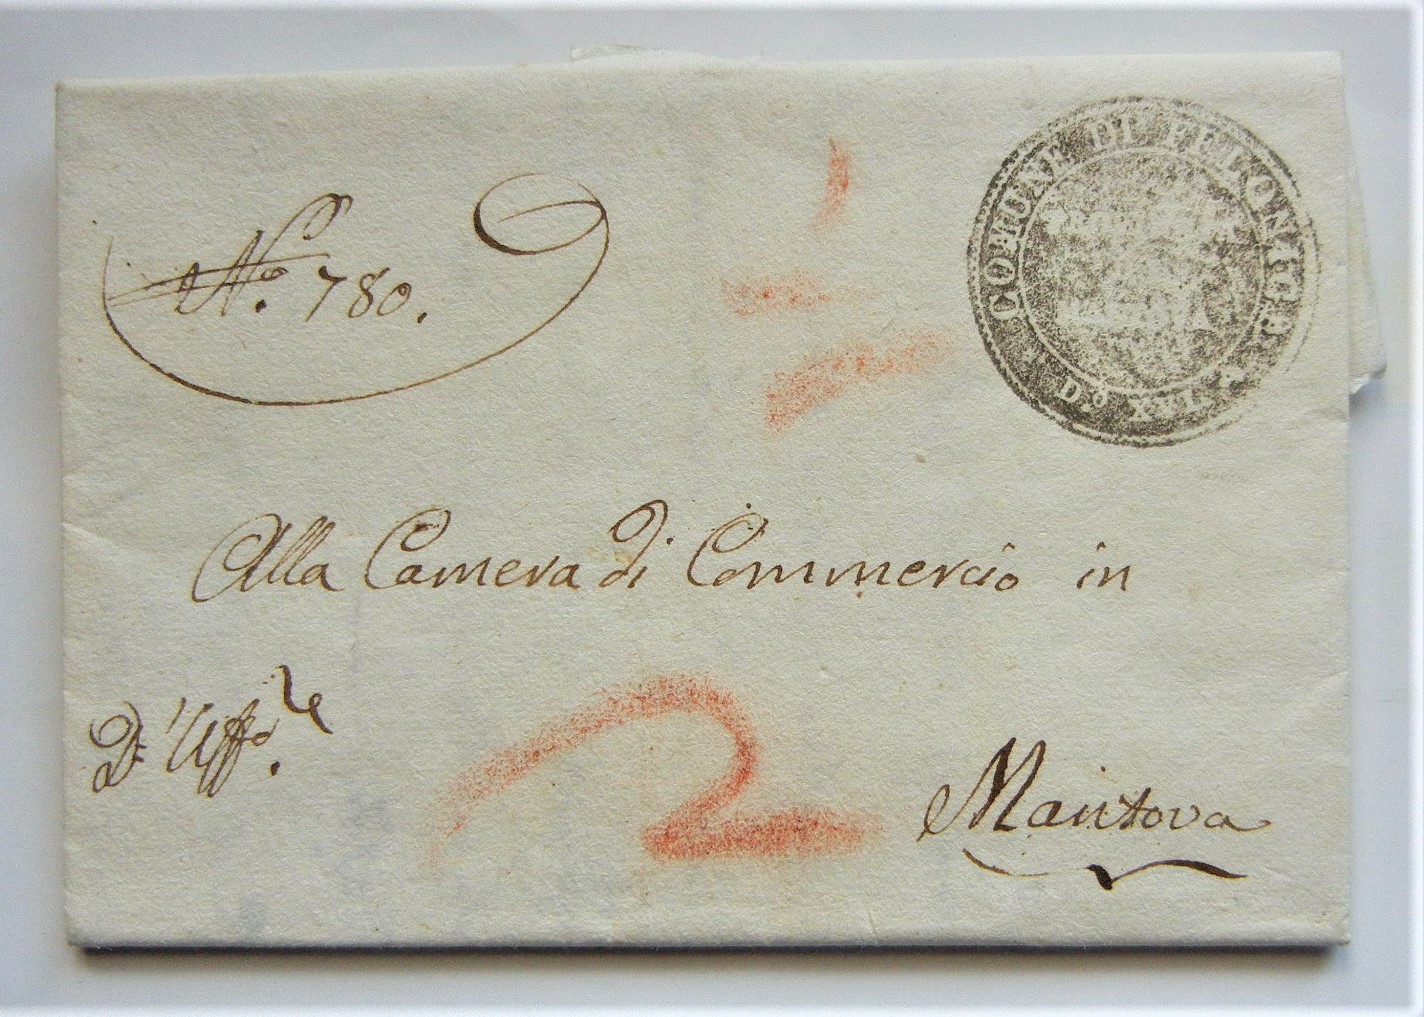 N.o 780.
COMUNE DI FELONICA
D.o XVI.
Alla Camera di Commercio in
D'Uff.o
Mantova
2